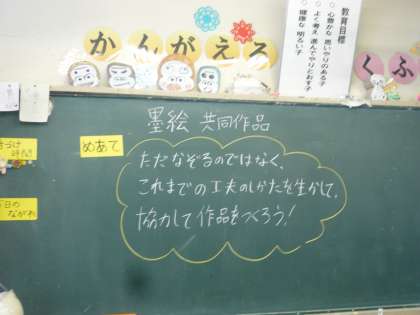 かんがえる
くふ
教育目標
○ 心豊かな 思いやりのある子
○ よく考え 進んでやりとおす子
○ 健康な 明るい子
墨絵 共同作品
めあて
ただなぞるのではなく、
これまでの工夫のしかたを生かして、
協力して作品をつくろう!
今日の
ながれ